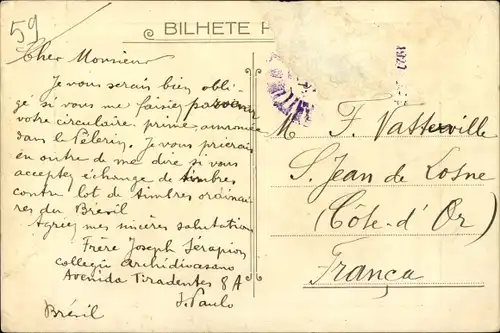 59
BILHETE P
1927
Cher Monsieur
Je vous serais bien obli-
gé si vous me faisiez parvenir
votre circulaire prime, annoncée
dans le Pélerin. Je vous prierais
en outre de me dire si vous
acceptez échange de timbres
contre lot de timbres ordinai-
res du Brésil
Agréez mes sincères salutations
Frère Joseph Sérapion
collegio archidiocesano
Avenida Tiradentes 8 A
S. Paulo
Brésil
M F. Vatteville
S. Jean de Losne
(Côte-d'Or)
França